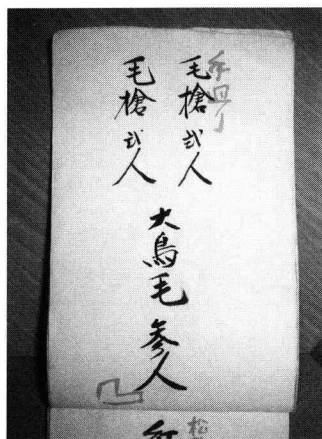 毛槍弍人
毛槍弍人
大鳥毛参人
松